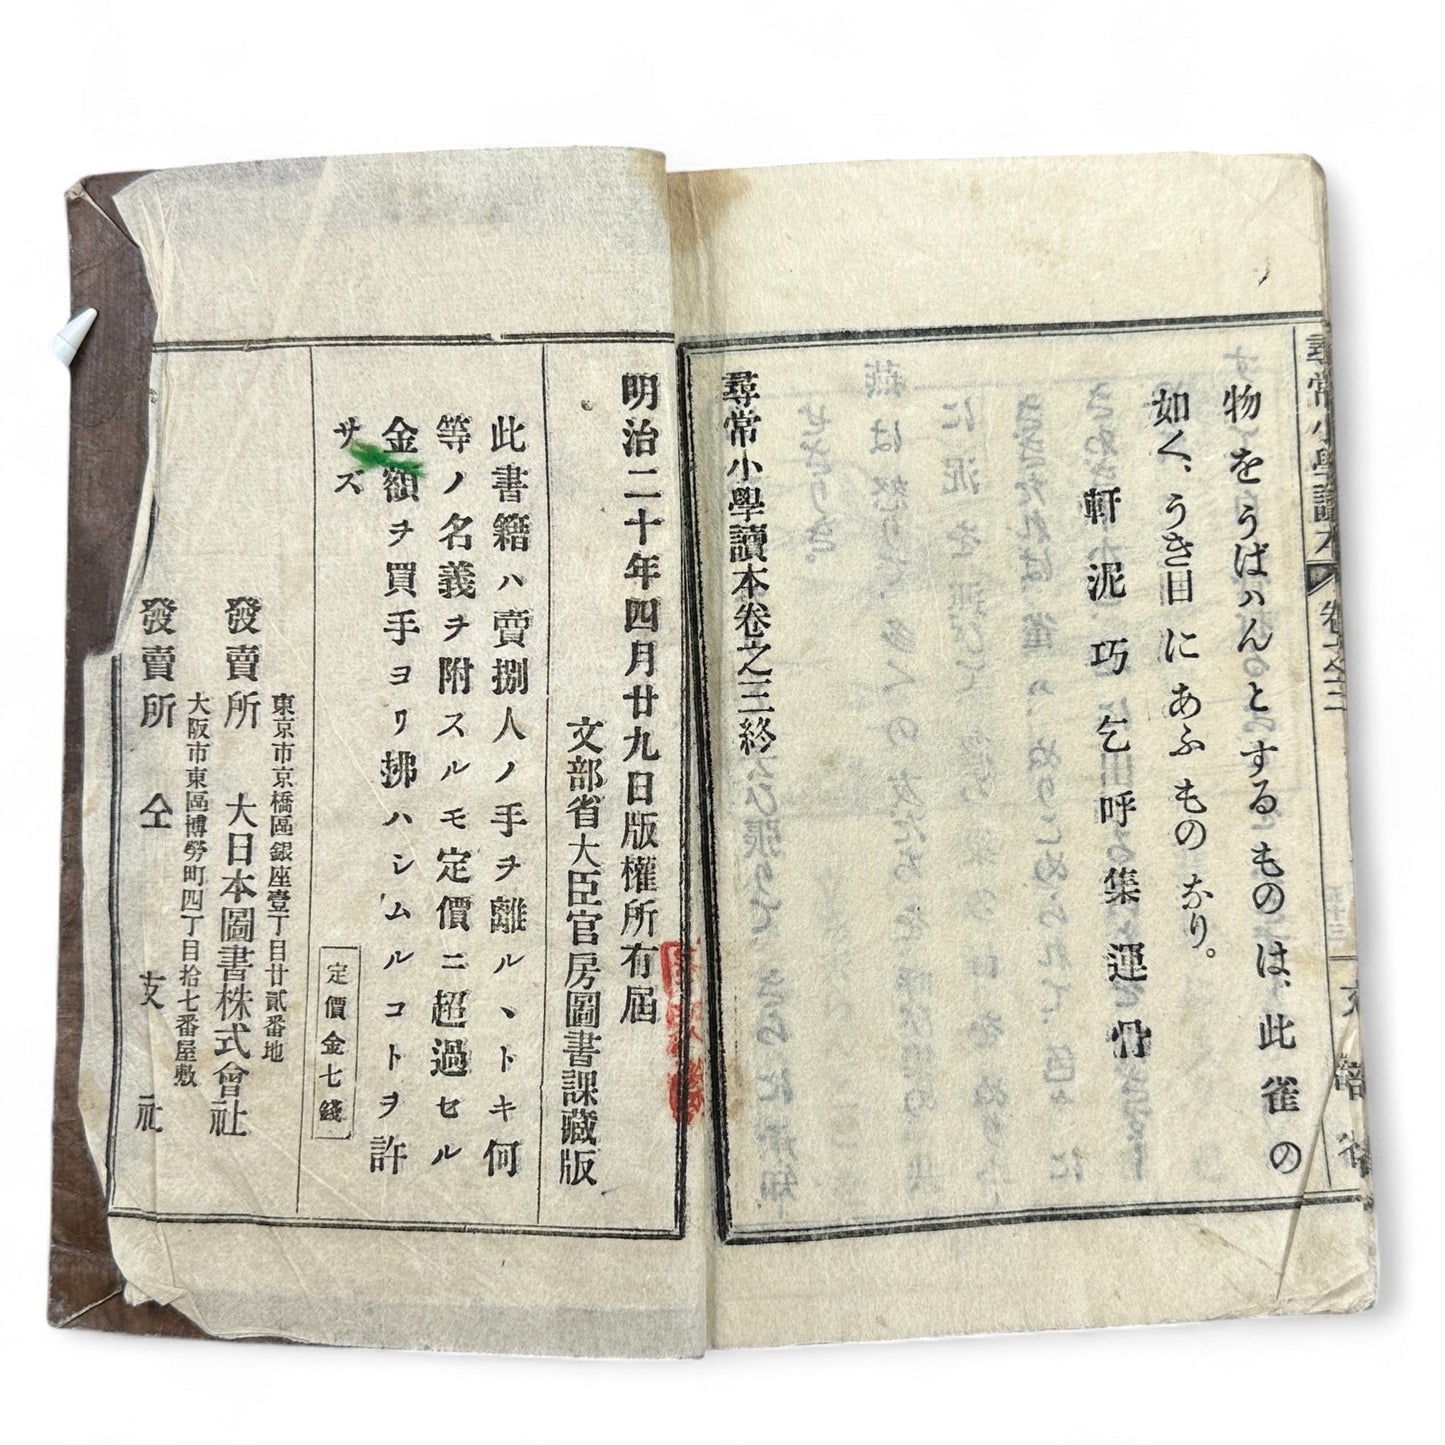 物をうばハんとするものは、此雀の
如く、うき目にあふものなり。
軒泥巧乞呼集運骨
尋常小學讀本卷之三終
明治二十年四月廿九日版權所有屆
文部省大臣官房圖書課藏版
此書籍ハ賣捌人ノ手ヲ離ルヽトキ何
等ノ名義ヲ附スルモ定價ニ超過セル
金額ヲ買手ヨリ拂ハシムルコトヲ許
サズ
定價金七錢
東京市京橋區銀座壹丁目廿貳番地
發賣所 大日本圖書株式會社
大阪市東區博勞町四丁目拾七番屋敷
發賣所 仝 支 社